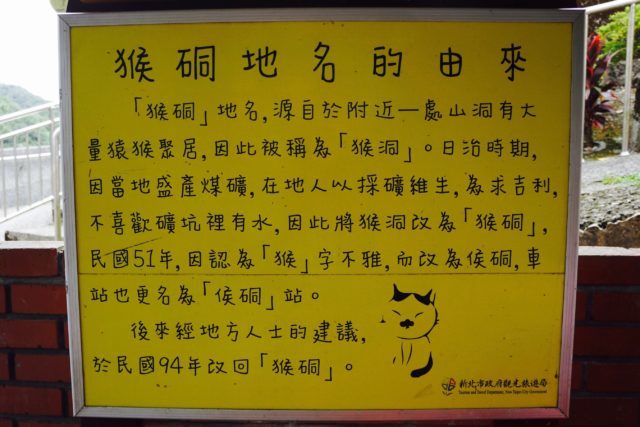 猴硐地名的由來
「猴硐」地名,源自於附近一處山洞有大
量猿猴聚居,因此被稱為「猴洞」。日治時期,
因當地盛產煤礦,在地人以採礦維生,為求吉利,
不喜歡礦坑裡有水,因此將猴洞改為「猴硐」,
民國51年,因認為「猴」字不雅,而改為侯硐,車
站也更名為「侯硐」站。
後來經地方人士的建議,
於民國94年改回「猴硐」。
新北市政府觀光旅遊局
Tourism and Travel Department, New Taipei City Government